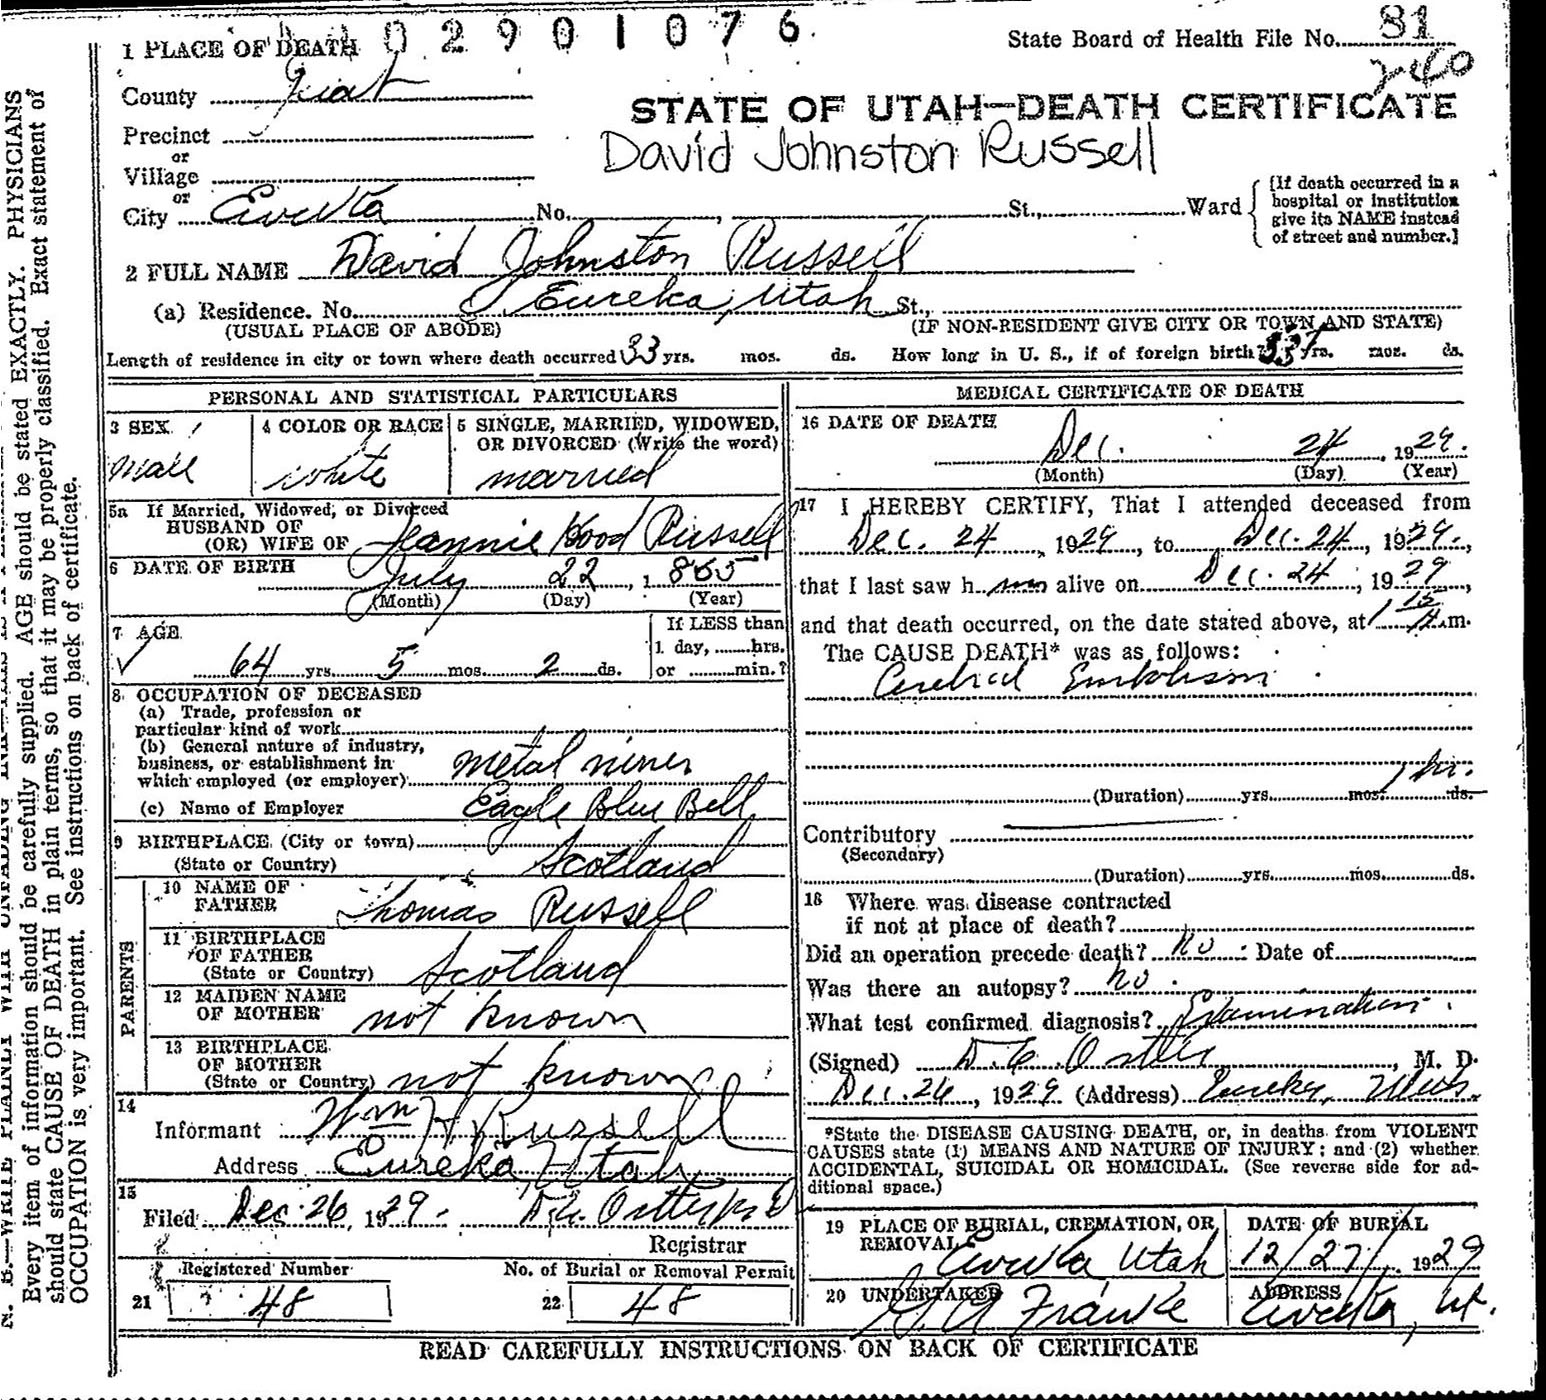 102901076.
1 PLACE OF DEATH
State Board of Health File No. 81
240
County Juab
STATE OF UTAH—DEATH CERTIFICATE
David Johnston Russell
Precinct
or
Village
or
City Eureka No. , St., Ward
[If death occurred in a
hospital or institution
give its NAME instead
of street and number.]
2 FULL NAME David Johnston Russell
(a) Residence. No. Eureka, Utah St.,
(USUAL PLACE OF ABODE) (IF NON-RESIDENT GIVE CITY OR TOWN AND STATE)
Length of residence in city or town where death occurred 33 yrs. mos. ds. How long in U. S., if of foreign birth? yrs. mos. ds.
PERSONAL AND STATISTICAL PARTICULARS
3 SEX
male
4 COLOR OR RACE
white
5 SINGLE, MARRIED, WIDOWED,
OR DIVORCED (Write the word)
married
5a If Married, Widowed, or Divorced
HUSBAND OF
(OR) WIFE OF Jeannie Hood Russell
6 DATE OF BIRTH
July 22, 1 865
(Month) (Day) (Year)
7 AGE
64 yrs. 5 mos. 2 ds.
If LESS than
1 day, hrs.
or min.?
8 OCCUPATION OF DECEASED
(a) Trade, profession or
particular kind of work
(b) General nature of industry,
business, or establishment in
which employed (or employer) metal miner
(c) Name of Employer Eagle Blue Bell
9 BIRTHPLACE (City or town)
(State or Country) Scotland
PARENTS
10 NAME OF
FATHER Thomas Russell
11 BIRTHPLACE
OF FATHER
(State or Country) Scotland
12 MAIDEN NAME
OF MOTHER not known
13 BIRTHPLACE
OF MOTHER
(State or Country) not known
14
Informant Wm H Russell
Address Eureka, Utah
15
Filed Dec. 26, 1929.
Registrar
Registered Number
21 48
No. of Burial or Removal Permit
22 48
MEDICAL CERTIFICATE OF DEATH
16 DATE OF DEATH
Dec. 24, 1929.
(Month) (Day) (Year)
17 I HEREBY CERTIFY, That I attended deceased from
Dec. 24, 1929, to Dec. 24, 1929.,
that I last saw h im alive on Dec. 24, 1929,
and that death occurred, on the date stated above, at 1 15 A.m.
The CAUSE DEATH* was as follows:
Cerebral Embolism.
1 hr.
(Duration) yrs. mos. ds.
Contributory
(Secondary)
(Duration) yrs. mos. ds.
18 Where was disease contracted
if not at place of death?
Did an operation precede death? No : Date of
Was there an autopsy? no.
What test confirmed diagnosis? Examination.
(Signed) , M. D.
Dec. 26, 1929 (Address) Eureka, Utah.
*State the DISEASE CAUSING DEATH, or, in deaths from VIOLENT
CAUSES state (1) MEANS AND NATURE OF INJURY; and (2) whether
ACCIDENTAL, SUICIDAL OR HOMICIDAL. (See reverse side for ad-
ditional space.)
19 PLACE OF BURIAL, CREMATION, OR
REMOVAL
Eureka Utah
DATE OF BURIAL
12/27/, 1929
20 UNDERTAKER
Franke
ADDRESS
Eureka, Ut.
READ CAREFULLY INSTRUCTIONS ON BACK OF CERTIFICATE
Every item of information should be carefully supplied. AGE should be stated EXACTLY. PHYSICIANS
should state CAUSE OF DEATH in plain terms, so that it may be properly classified. Exact statement of
OCCUPATION is very important. See instructions on back of certificate.